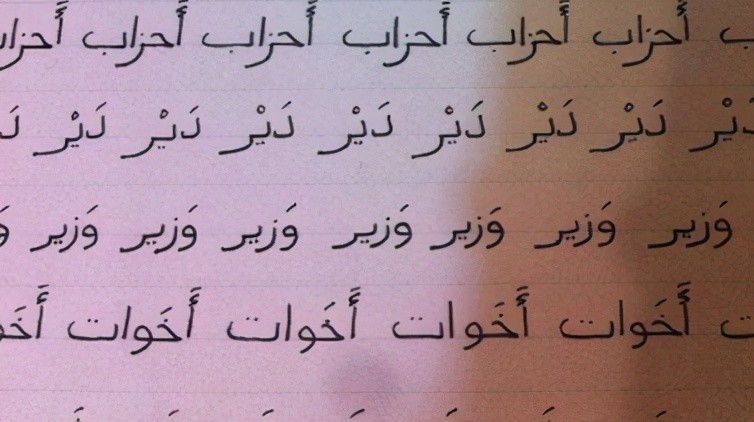 أَحزاب أَحزاب أَحزاب أَحزاب أَحزاب أَحزاب
دَيْر دَيْر دَيْر دَيْر دَيْر دَيْر دَيْر دَيْر
وَزير وَزير وَزير وَزير وَزير وَزير وَزير
أَخَوات أَخَوات أَخَوات أَخَوات